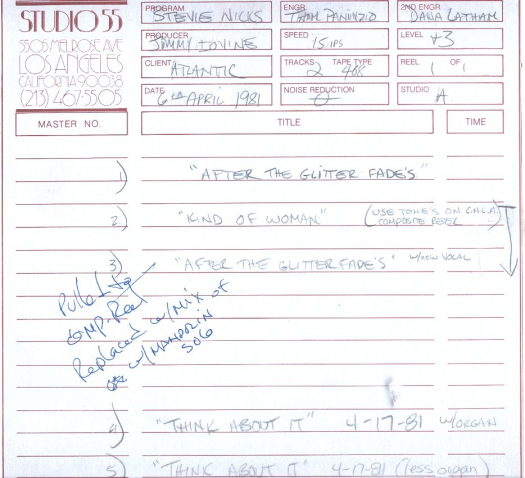 STUDIO 55
5505 MELROSE AVE
LOS ANGELES
CALIFORNIA 90038
(213) 467-5505
PROGRAM STEVIE NICKS
ENGR. THOM PANUNZIO
2ND ENGR DANA LATHAM
PRODUCER JIMMY IOVINE
SPEED 15 IPS
LEVEL +3
CLIENT ATLANTIC
TRACKS 2 TAPE TYPE 406
REEL 1 OF 1
DATE 6th APRIL 1981
NOISE REDUCTION
STUDIO A
MASTER NO. TITLE TIME
1) "AFTER THE GLITTER FADE'S"
2) "KIND OF WOMAN" (USE TONE'S ON G.N.L.A. COMPOSITE REEL)
3) "AFTER THE GLITTER FADE'S" w/NEW VOCAL
Pulled to
COMP. Reel
Replaced w/MIX of
w/MANDOLIN
SOLO
4) "THINK ABOUT IT" 4-17-81 w/ORGAN
5) "THINK ABOUT IT" 4-17-81 (less organ)